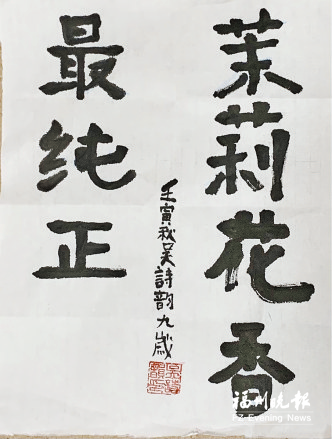 茉莉花香
最纯正
壬寅秋吴詩韵九歲
福州晚报
FZ Evening News